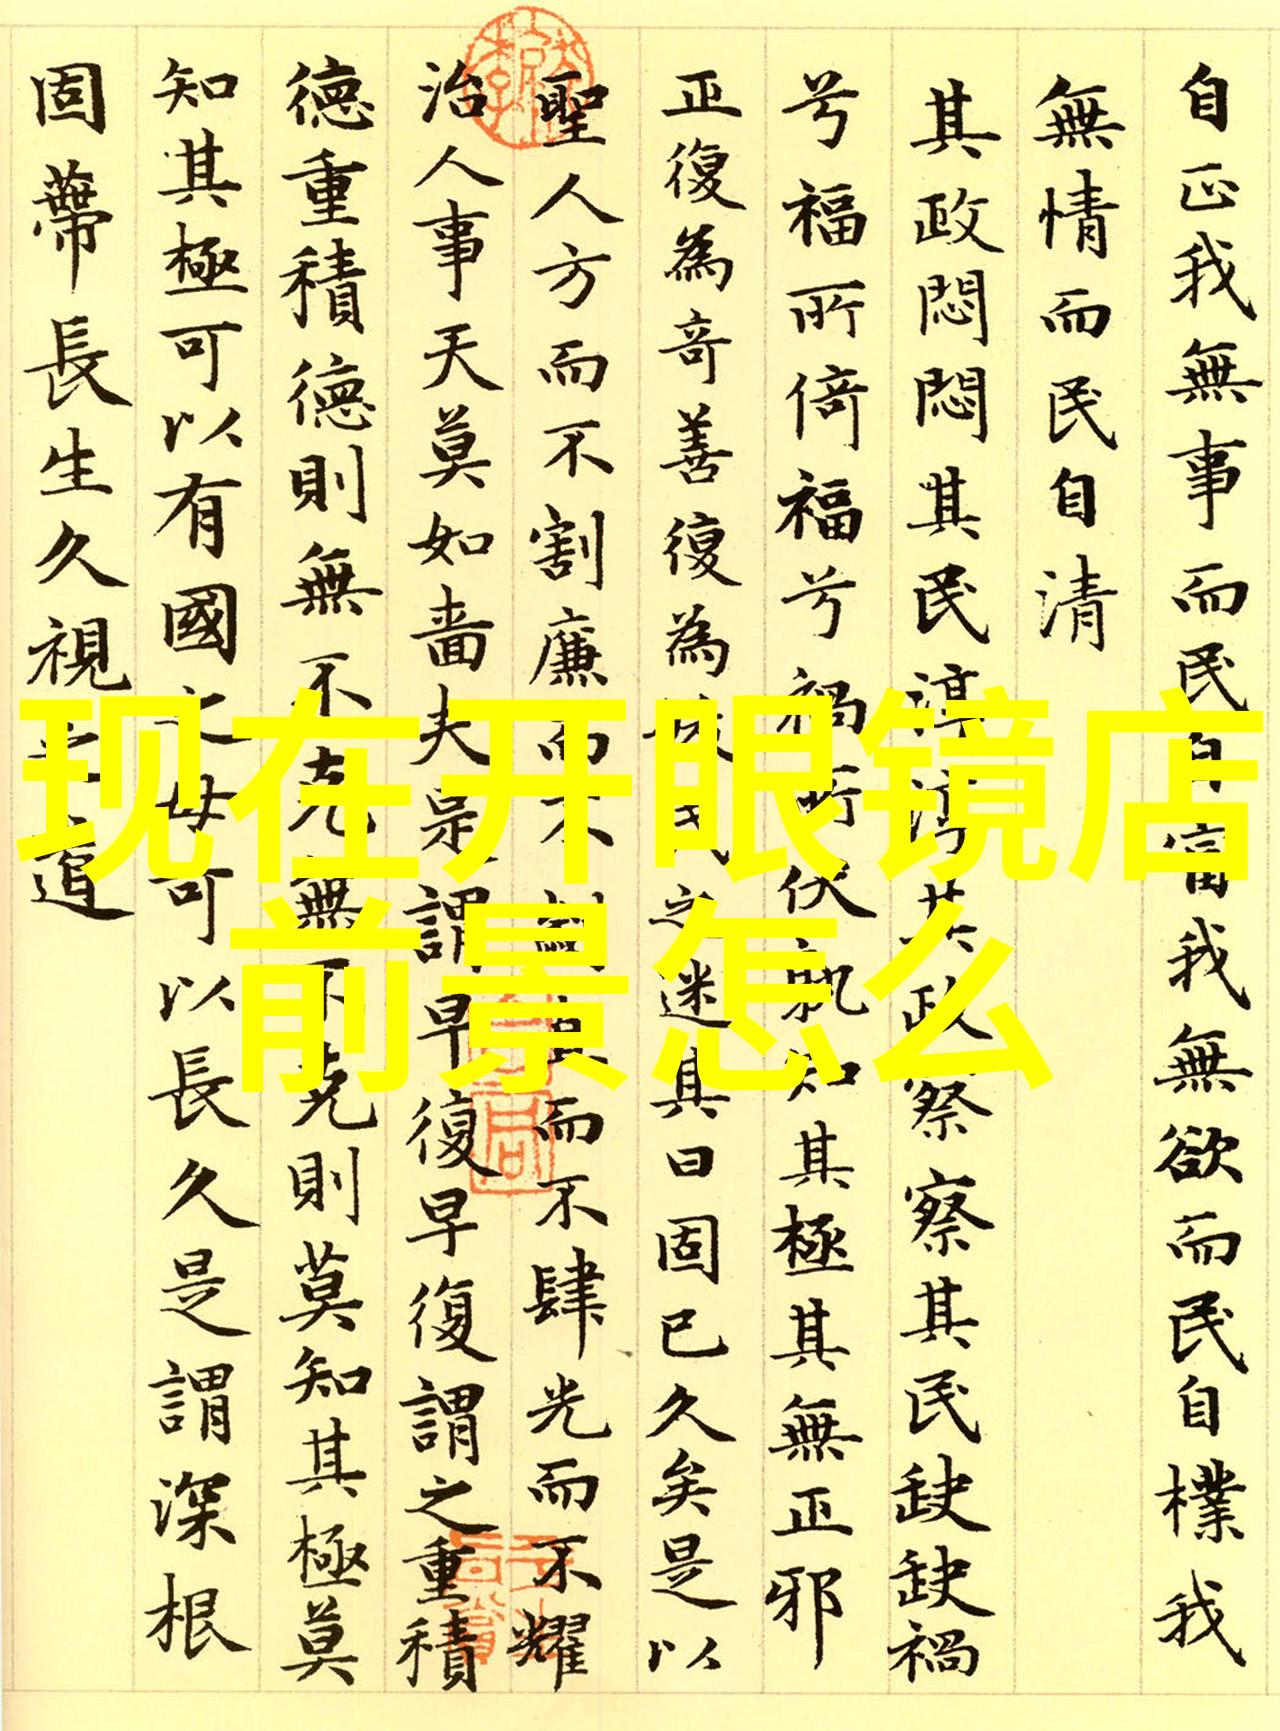 自正我無事而民自富我無欲而民自樸我
無情而民自清
其政悶悶其民淳淳其政察察其民缺缺禍
兮福所倚福兮禍所伏孰知其極其無正邪
正復為奇善復為民之迷其日固已久矣是以
聖人方而不割廉而不劌直而不肆光而不耀
治人事天莫如嗇夫是謂早復早復謂之重積
德重積德則無不克無不克則莫知其極莫
知其極可以有國之母可以長久是謂深根
固蔕長生久視之道
现在开眼镜店
前景怎么